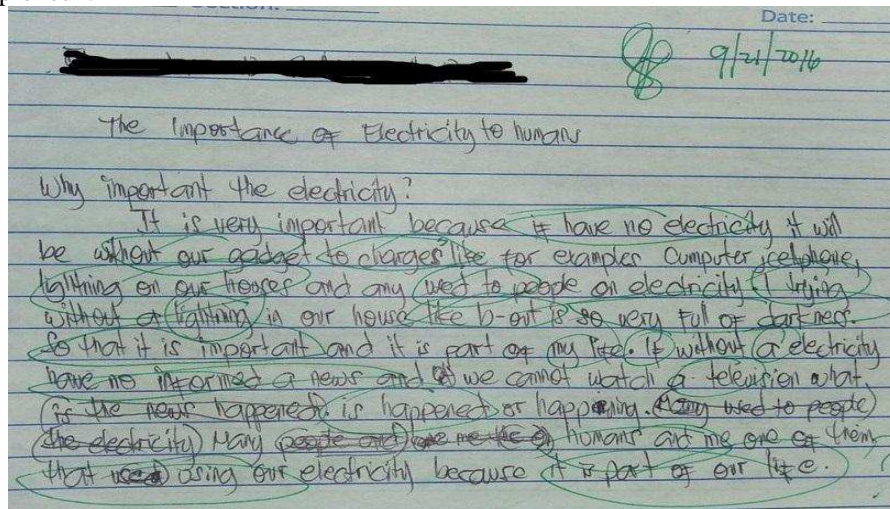 Date:
9/21/2016
The Importance of Electricity to humans
Why important the electricity?
It is very important because if have no electricity it will
be without our gadget to charges like for examples Cumputer, cellphone,
lightning on our houses and any used to people on electricity. I trying
without a lightning in our house like b-out is so very full of darkness.
So that it is important and it is part of my life. If without a electricity
have no informed a news and we cannot watch a television what
is the news happened is happened or happening. Many used to people
the electricity Many people and humans and me one of them,
that used using our electricity because it is part of our life.